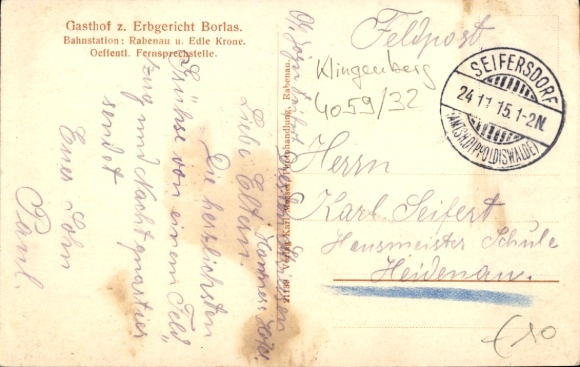 Gasthof z. Erbgericht Borlas.
Bahnstation: Rabenau u. Edle Krone.
Oeffentl. Fernsprechstelle.
Liebe Eltern.
Die herzlichsten
Grüße von einem Feld
zug und Nachtquartier
sendet
Euer Sohn
Paul.
Feldpost
Klingenberg
4059/32
SEIFERSDORF
24.11.15.1-2N.
(AMTSH. DIPPOLDISWALDE)
Herrn
Karl Seifert
Hausmeister Schule
Heidenau.
€10